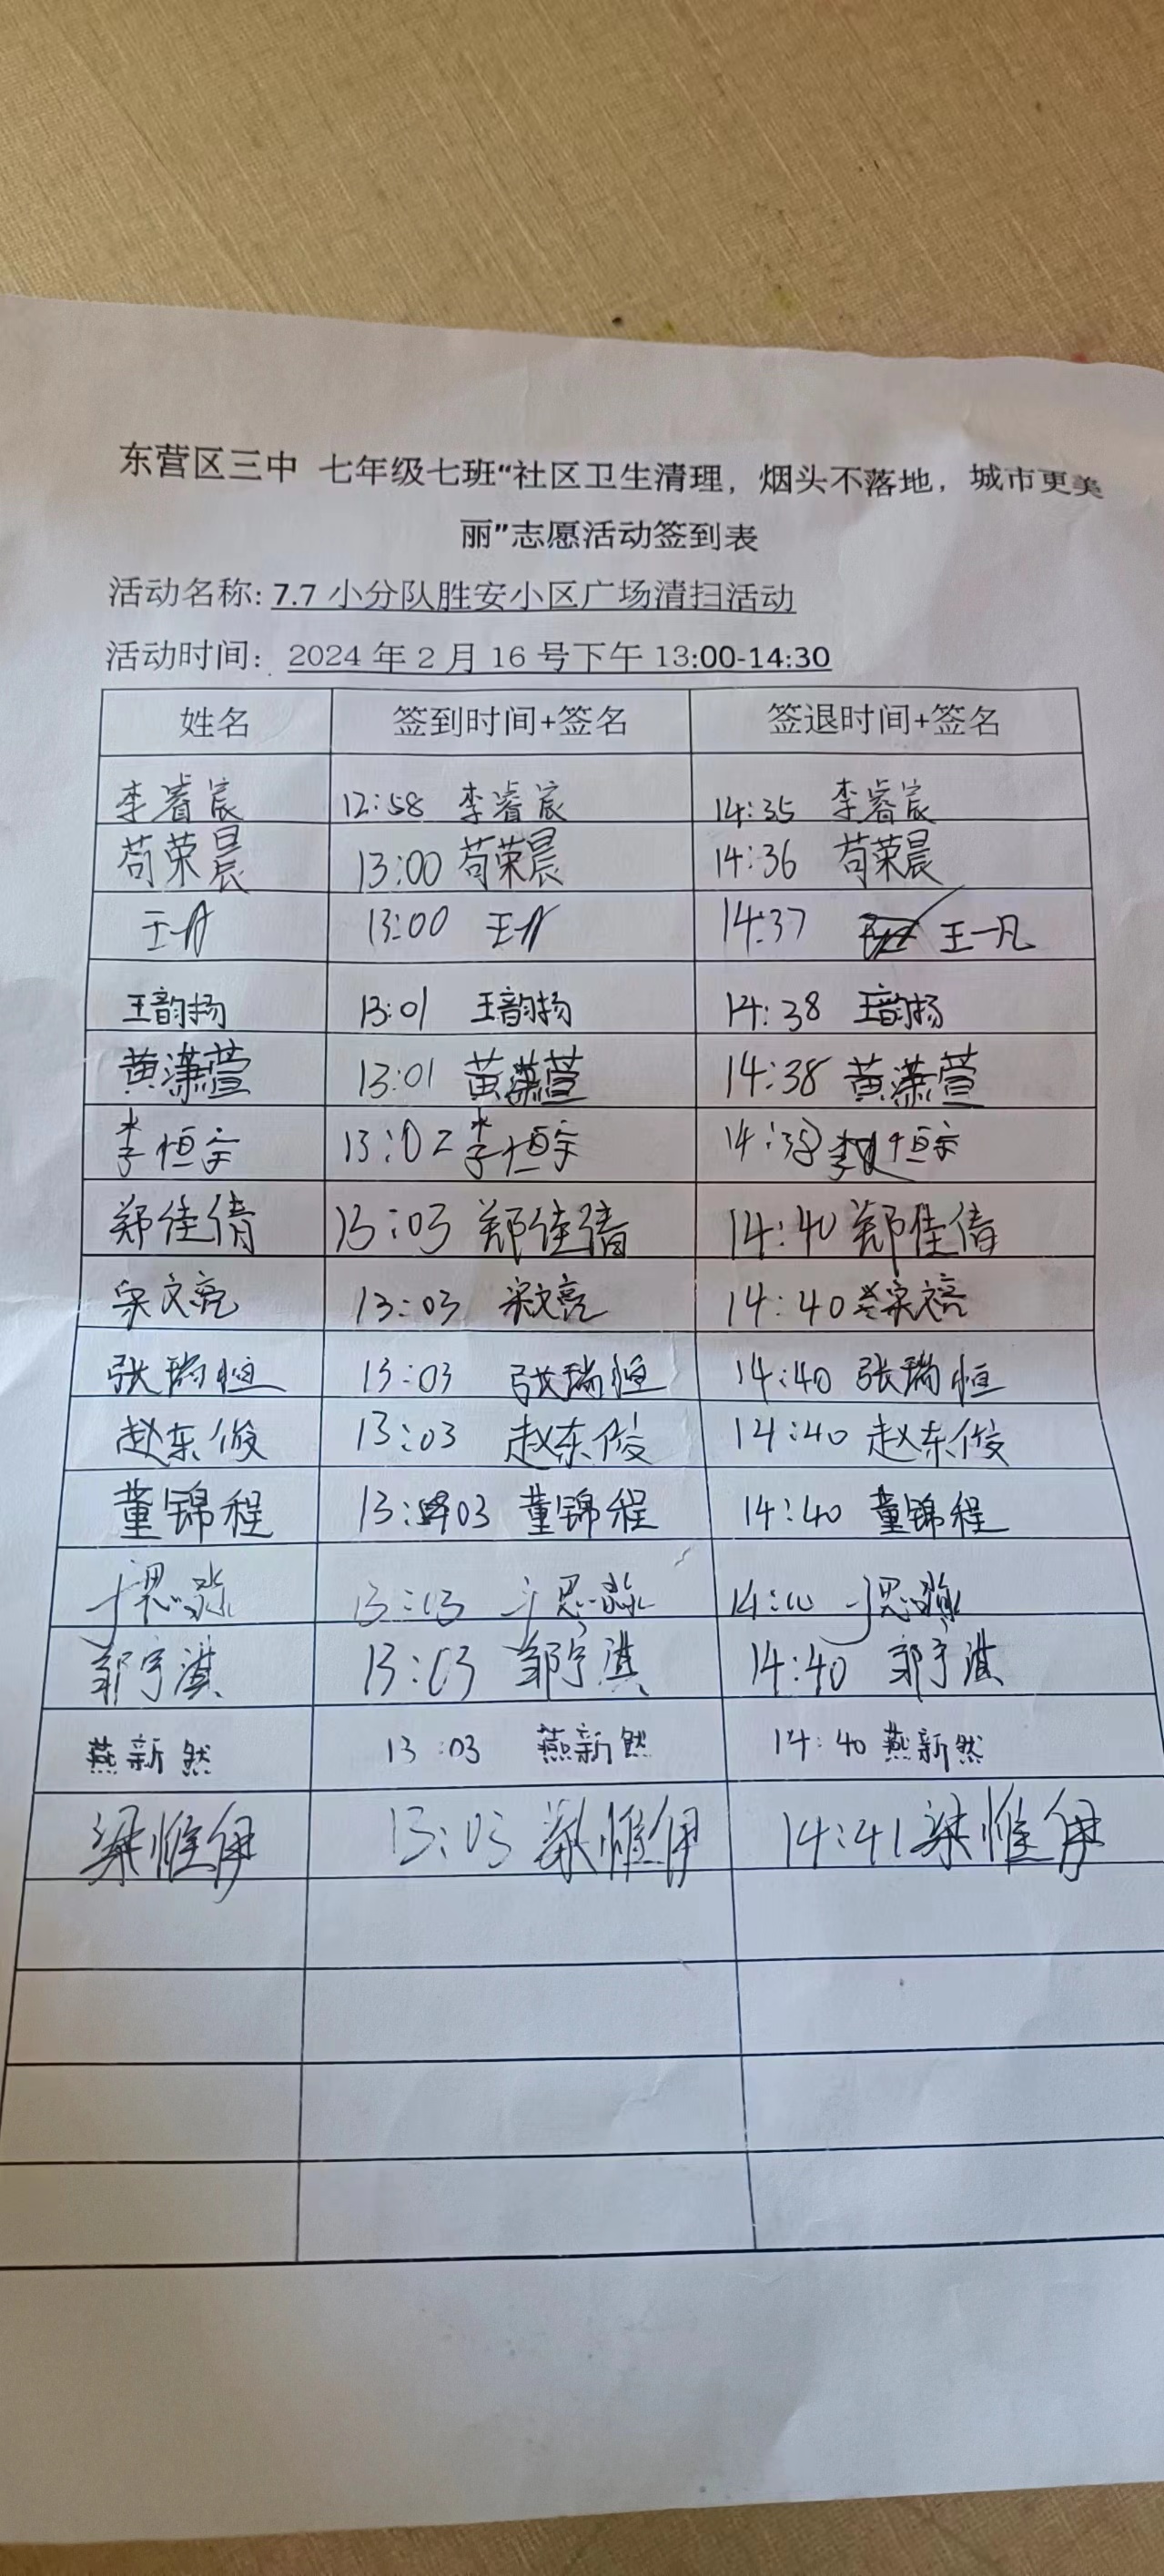 东营区三中 七年级七班“社区卫生清理，烟头不落地，城市更美
丽”志愿活动签到表
活动名称: 7.7 小分队胜安小区广场清扫活动
活动时间： 2024 年 2 月 16 号下午 13:00-14:30
姓名 签到时间+签名 签退时间+签名
李睿宸 12:58 李睿宸 14:35 李睿宸
苟荣晨 13:00 苟荣晨 14:36 苟荣晨
王一凡 13:00 王一凡 14:37 王一凡
王韵扬 13:01 王韵扬 14:38 王韵扬
黄潇萱 13:01 黄潇萱 14:38 黄潇萱
李恒宇 13:02 李恒宇 14:39 李恒宇
郑佳倩 13:03 郑佳倩 14:40 郑佳倩
宋文亮 13:03 宋文亮 14:40 宋文亮
张瑞恒 13:03 张瑞恒 14:40 张瑞恒
赵东俊 13:03 赵东俊 14:40 赵东俊
董锦程 13:03 董锦程 14:40 董锦程
于思淼 13:03 于思淼 14:40 于思淼
郭宇淇 13:03 郭宇淇 14:40 郭宇淇
燕新然 13:03 燕新然 14:40 燕新然
梁惟伊 13:03 梁惟伊 14:41 梁惟伊